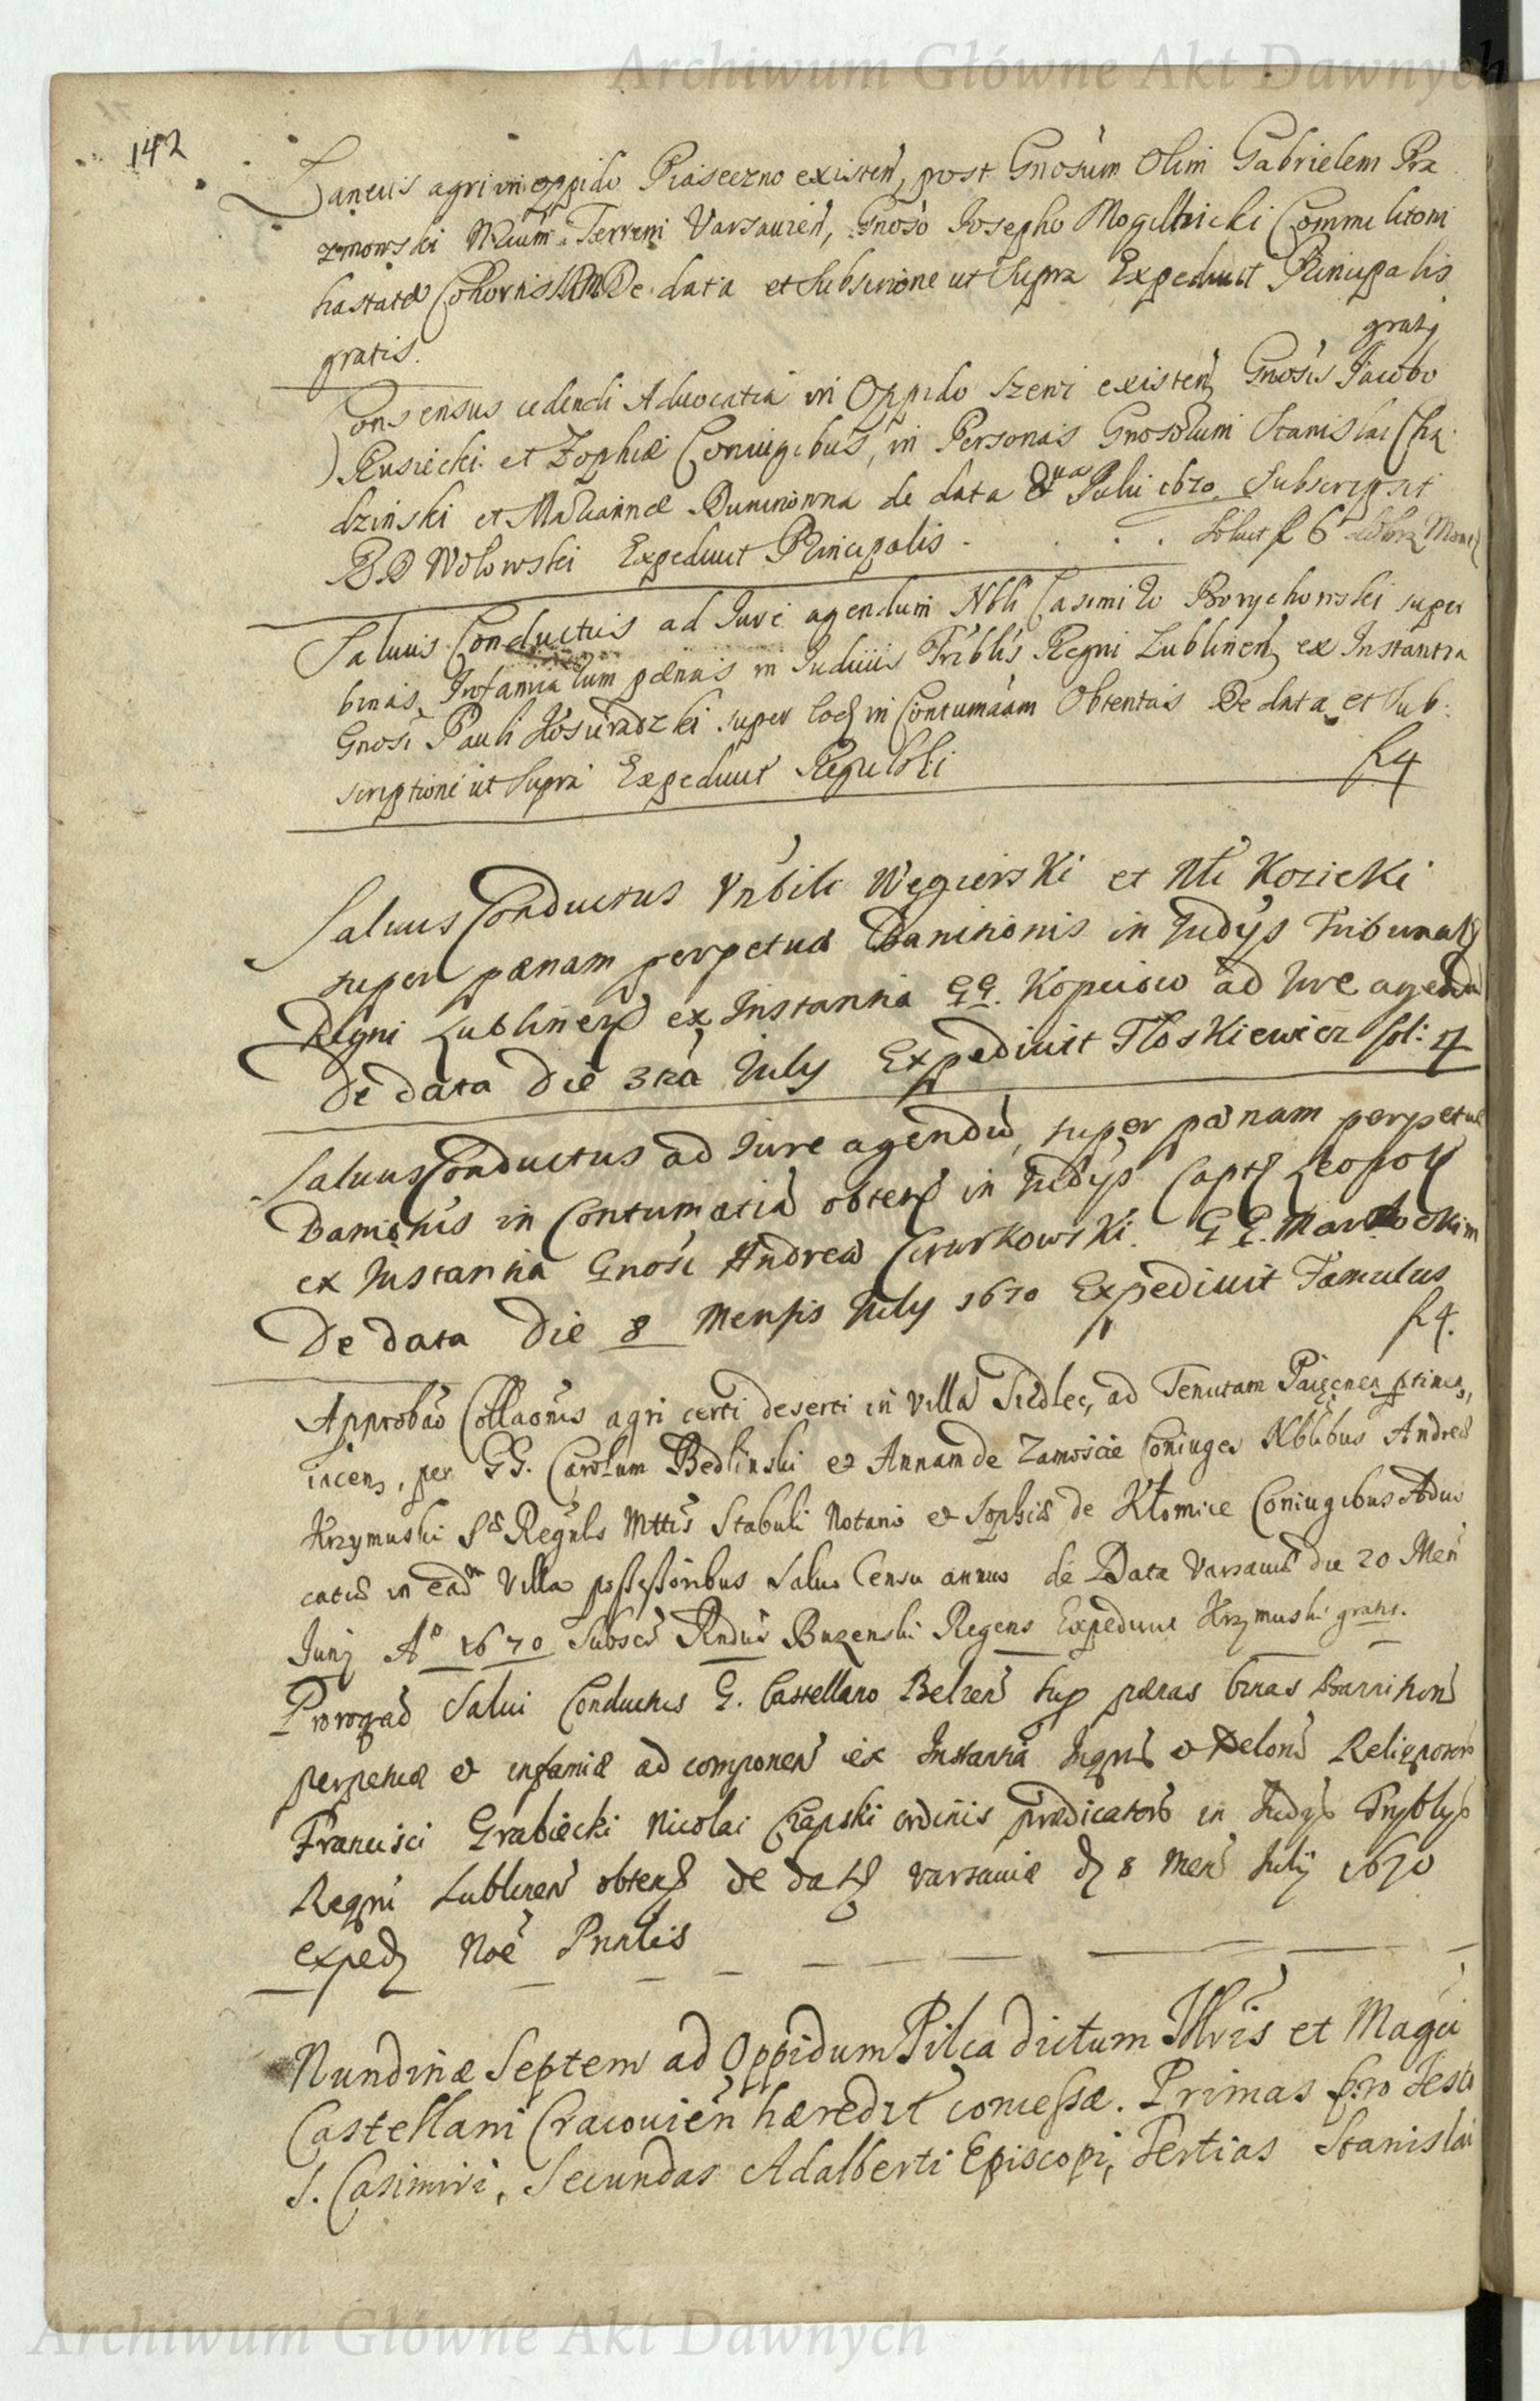 Archiwum Główne Akt Dawnych
142
Laneus agri in oppido Piaseczno existeñ, post Gnosum Olim Gabrielem Pra
zmowski Terreni Varsavieñ, Gnoso Josepho Mogilnicki Commilitoni
hastatæ Cohortis De data et Subscrione ut Supra Expediuit Principalis
gratis.
gratis
Consensus cedendi Aduocatiã in Oppido existeñ Gnosis Jacobo
Rusiecki et Zophiæ Coniugibus, in Personas Gnosorum Stanislai Chą
dzinski et Mariannæ Duninowna de data Julii 1670 Subscripsit
Wołowski Expediuit Principalis . . . . Soluit f 6
Saluus Conductus ad Jure agendum Nbli Casimiro Borychowski super
binas Infamiæ tum pænas in Judiciis Triblis Regni Lublineñ ex Instantia
Gnosi Pauli super in Contumaciam Obtentas De data et Sub
scriptione ut Supra Expediuit f 4
Saluus Conductus Węgierski et Nli Kozicki
super pænam perpetuæ Bannitionis in Judijs Tribunal
Regni Lublineñ ex Instantia GG. ad Jure agendũ
De data Die 3tia July Expediuit Floskiewicz fl: 4
Saluus Conductus ad Jure agendũ, super pænam perpetuæ
Banionis in Contumatiã obteñ in Judijs Capt Leopol
ex Instantia Gnosi Andreæ Czurkowski. GG.
De data Die 8 Mensis July 1670 Expediuit Famulus
f 4.
Approbão Collaonis agri certi deserti in villa Siedlec, ad Tenutam ptinen,
iacen, per GG. Carolum Bedlinski et Annam de Zamoście Coniuges Nblibus Andreæ
Krzymuski Sæ Regls Mttis Stabuli Notario et Sophiæ de Kłomice Coniugibus Aduo
catiæ in eadm Villa possessoribus Saluo Censu annuo de Data Varsauiæ die 20 Meñ
Junij Ao 1670 Subscr Rndus Buzenski Regens Expediuit Krzymuski gratis.
Prorogao Salui Conductus G. Castellano Belzeñ sup pænas binas Bannitioñ
perpetuæ et infamiæ ad componeñ ex Instantia et Religiosorũ
Francisci Grabiecki Nicolai Czapski ordinis prædicatorũ in Judijs Tryblijs
Regni Lublineñ obteñ de data varsauiæ d 8 Meñ Julij 1670
exped Noe Pnalis
Nundinæ Septem ad Oppidum Pilca dictum Illris et Magci
Castellani Cracouieñ hæredit concessæ. Primas pro Festo
S. Casimiri, Secundas Adalberti Episcopi, Tertias Stanislai
Archiwum Główne Akt Dawnych